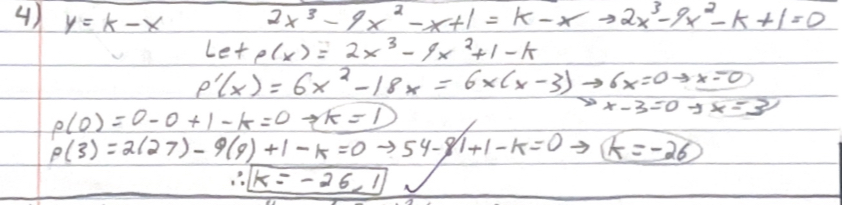 4) y = k - x 2x³ - 9x² - x + 1 = k - x → 2x³ - 9x² - k + 1 = 0
Let p(x) = 2x³ - 9x² + 1 - k
p'(x) = 6x² - 18x = 6x(x - 3) → 6x = 0 → x = 0
→ x - 3 = 0 → x = 3
p(0) = 0 - 0 + 1 - k = 0 → k = 1
p(3) = 2(27) - 9(9) + 1 - k = 0 → 54 - 81 + 1 - k = 0 → k = -26
∴ k = -26, 1 ✓